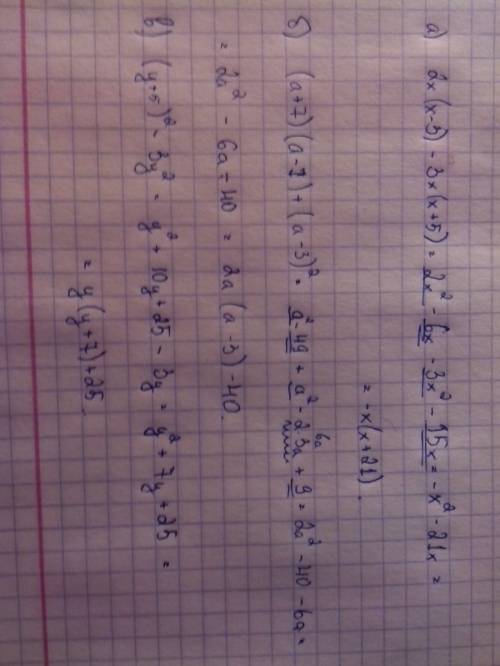 а) 2x(x-3) - 3x(x+5) = 2x² - 6x - 3x² - 15x = -x² - 21x =
= -x(x+21).
б) (a+7)(a-7)+(a-3)² = a²-49 + a² - 2·3a + 9 = 2a² - 40 - 6a =
6a
= 2a² - 6a - 40 = 2a(a-3)-40.
в) (y+5)² - 3y² = y² + 10y + 25 - 3y = y² + 7y + 25 =
= y(y+7)+25.